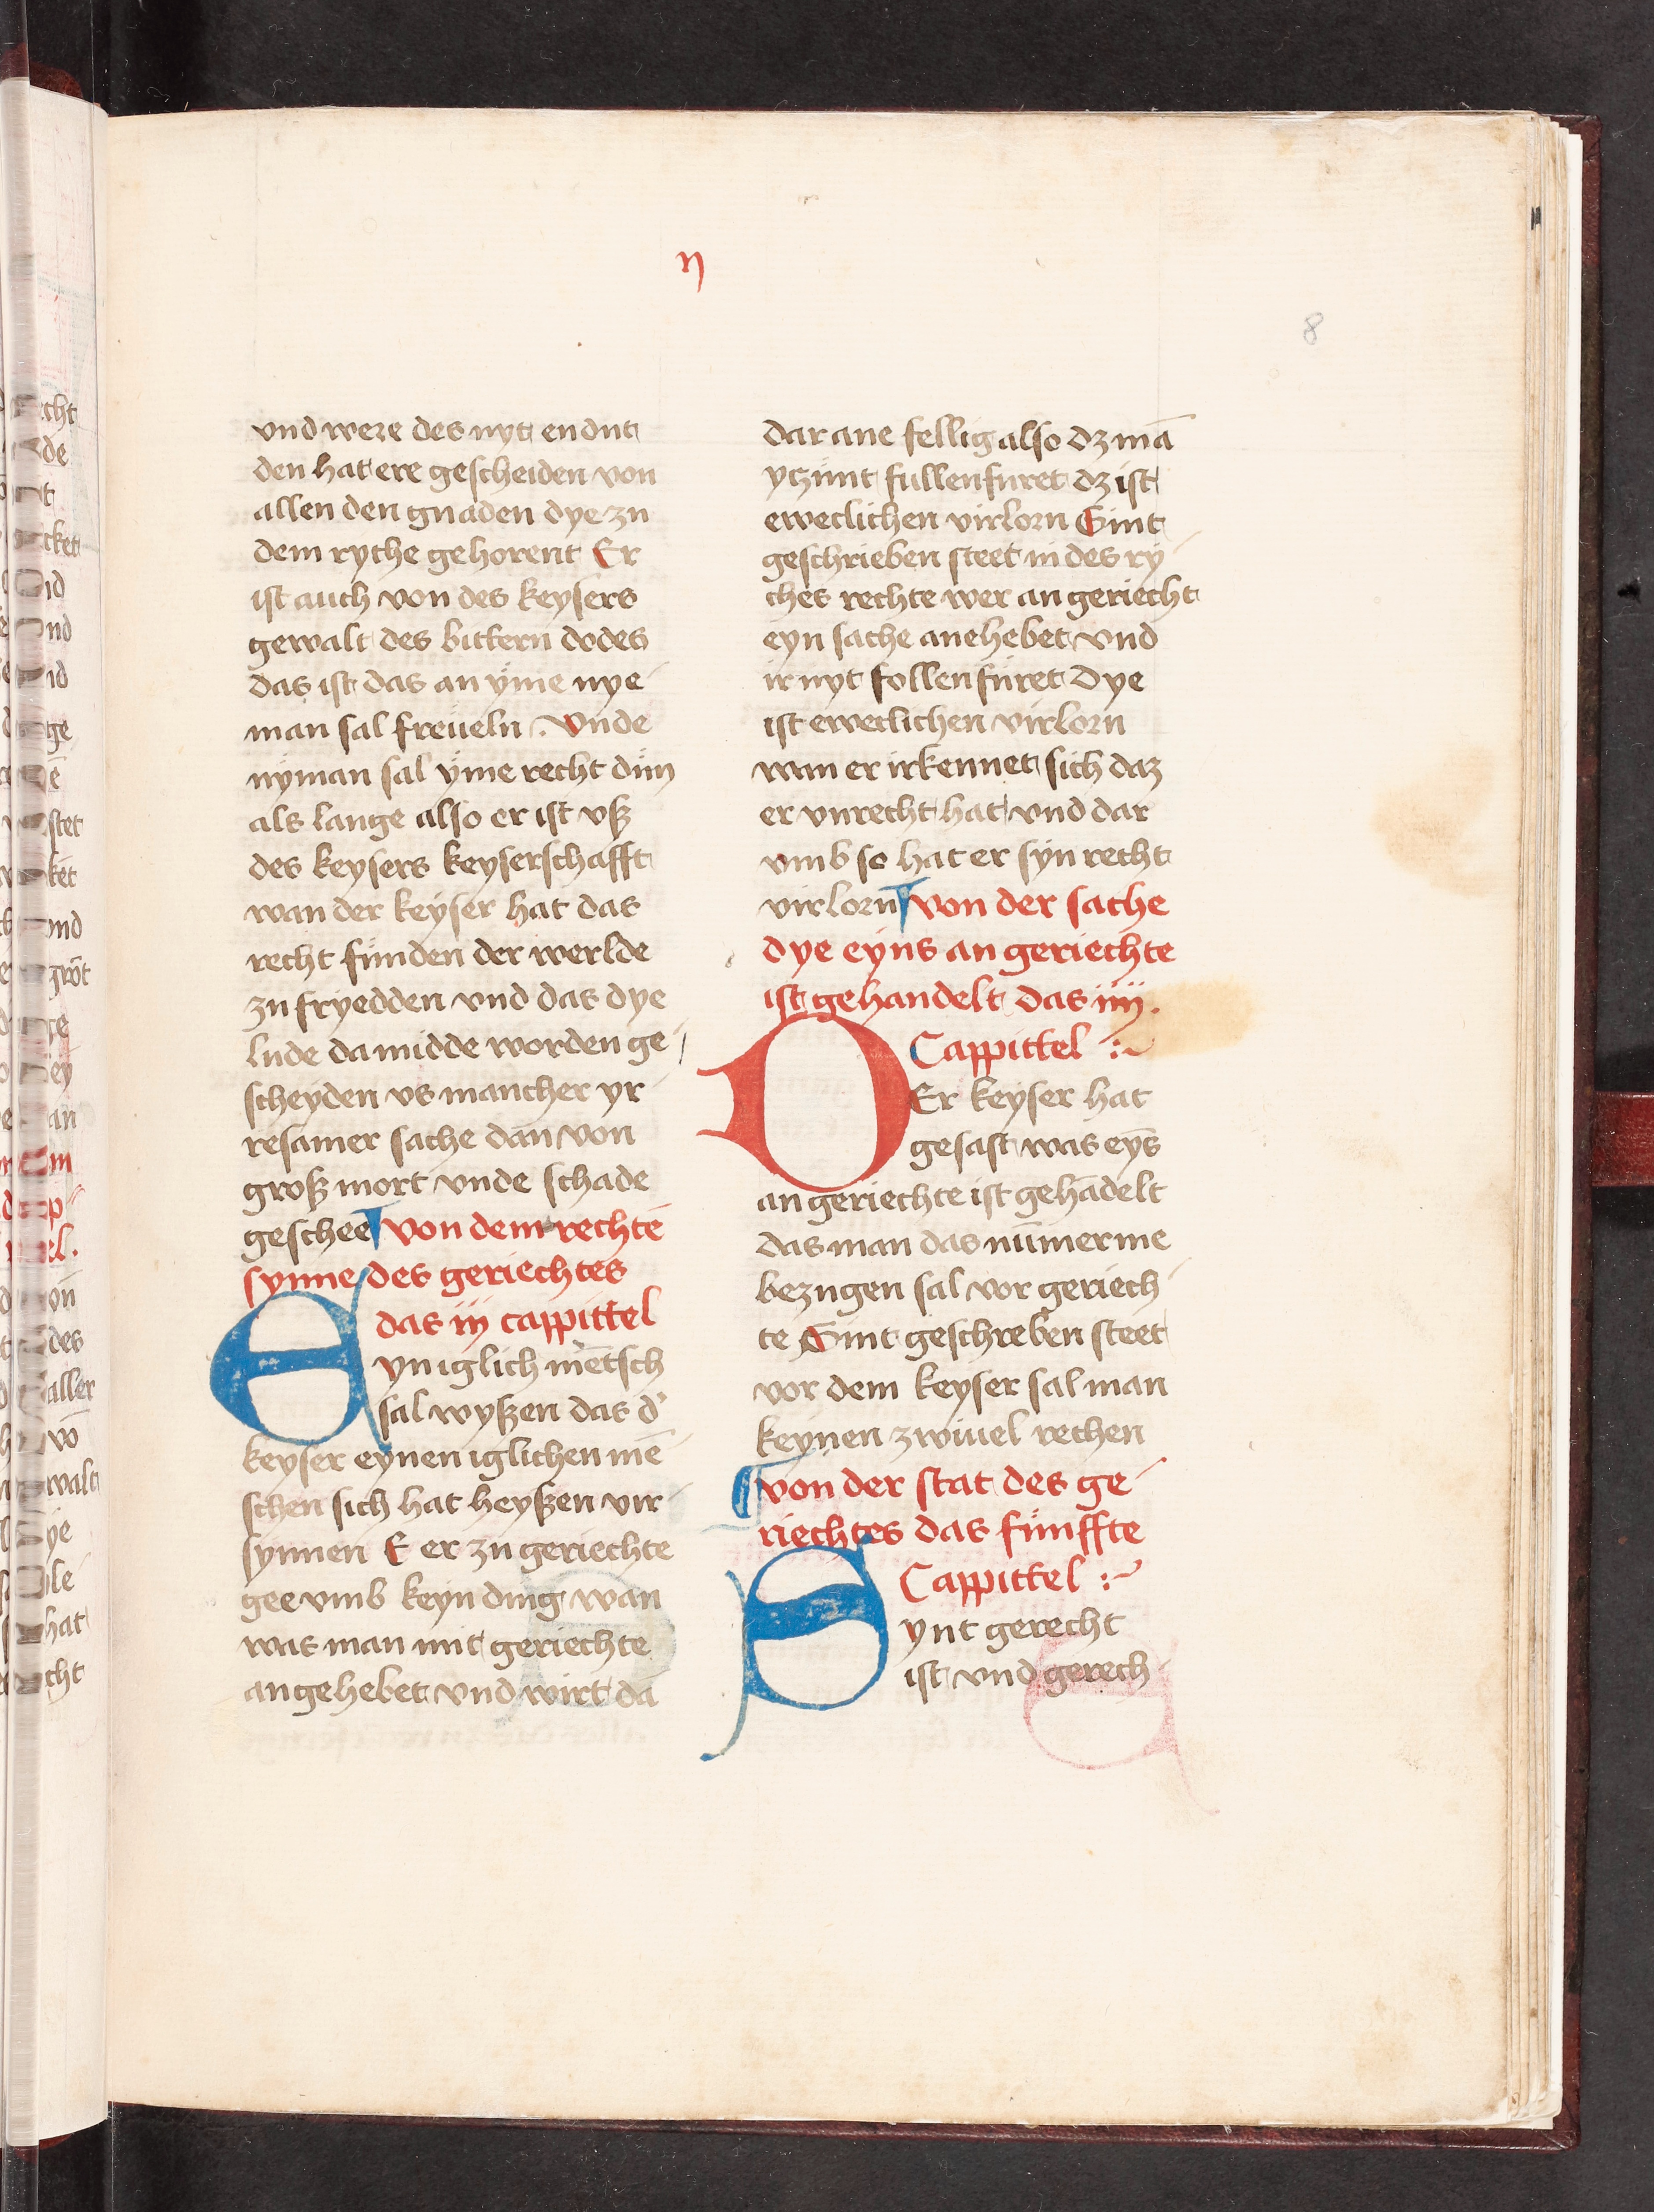 ij
8
vnd were des nyt en dut
den hat ere gescheiden von
allen den gnaden dye zu
dem ryche gehorent Er
ist auch von des keysers
gewalt des bittern dodes
das ist das an ÿme nye-
man sal freüeln. Vnde
nÿman sal ÿme recht dün
als lange also er ist vß
des keysers keyserschafft
wan der keÿser hat das
recht fünden der werlde
zu fryedden vnd das dye
lude da midde worden ge-
scheyden vs mancher yr-
resamer sache dan von
groß mort vnde schade
geschee ¶ von dem rechtē
synne des geriechtes
das iij cappittel
Eyn iglich mētsch
sal wyßen das d'
keyser eynen iglichen mē-
schen sich hat heyßen vir-
synnen E er zu geriechte
gee vmb keyn ding wan
was man mit geriechte
angehebet vnd wirt da
dar ane fellig also dz mā
yczünt fullenfüret dz ist
eweclichen virlorn Sint
geschrieben steet in des ry-
ches rechte wer an geriecht
eyn sache anehebet vnd
ir nyt follenfüret Dye
ist eweclichen virlorn
wan er irkennet sich daz
er vnrecht hat vnd dar
vmb so hat er syn recht
virlorn ¶ von der sache
dye eyns an geriechte
ist gehandelt das iiij.
Cappittel :~
DEr keyser hat
gesast was eyns
an geriechte ist gehādelt
das man das nūmerme
bezugen sal vor geriech-
te Sint geschreben steet
vor dem keyser sal man
keynen zwiuel rechen
¶ von der stat des ge-
riechtes das fünffte
Cappittel :~
Synt gerecht
ist vnd gerech-